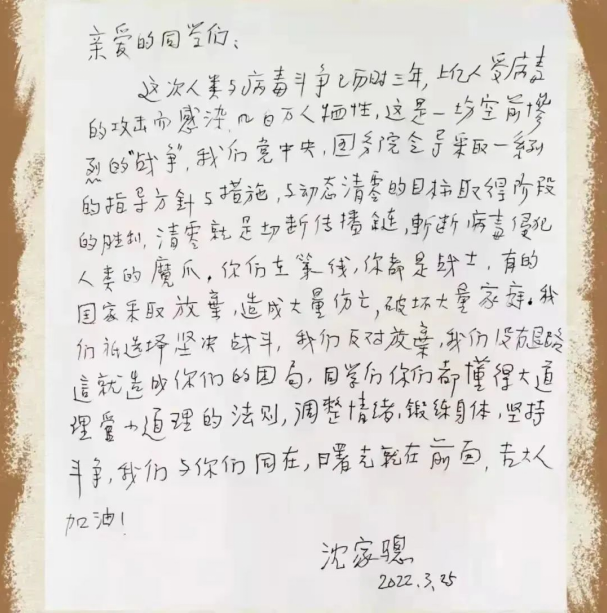 亲爱的同学们:
这次人类与病毒斗争已历时三年,上亿人受病毒
的攻击而感染,几百万人牺牲,这是一场空前惨
烈的"战争",我们党中央,国务院全导采取一系列
的指导方針与措施,与动态清零的目标取得阶段
的胜利,清零就是切断传播鏈,斬断病毒侵犯
人类的魔爪。你们在第线,你都是战士,有的
国家采取放棄,造成大量伤亡,破坏大量家庭。我
们祗选择坚决战斗,我们反对放棄,我们没有退路
這就造成你们的困局,同学们你们都懂得大道
理管小道理的法则,调整情绪,鍛练身体,坚持
斗争,我们与你们同在,曙光就在前面,吉大人
加油!
沈家骢
2022.3.25